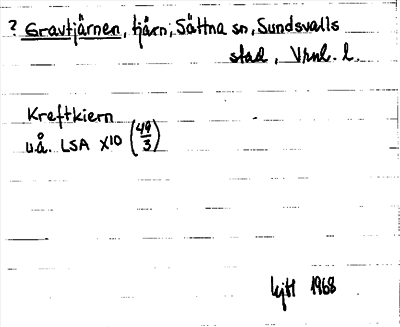 ? Gravtjärnen, tjärn; Sättna sn, Sundsvalls
stad, Vrnl. l.
Kreftkiern
u.å. LSA X10 (49/3)
1968